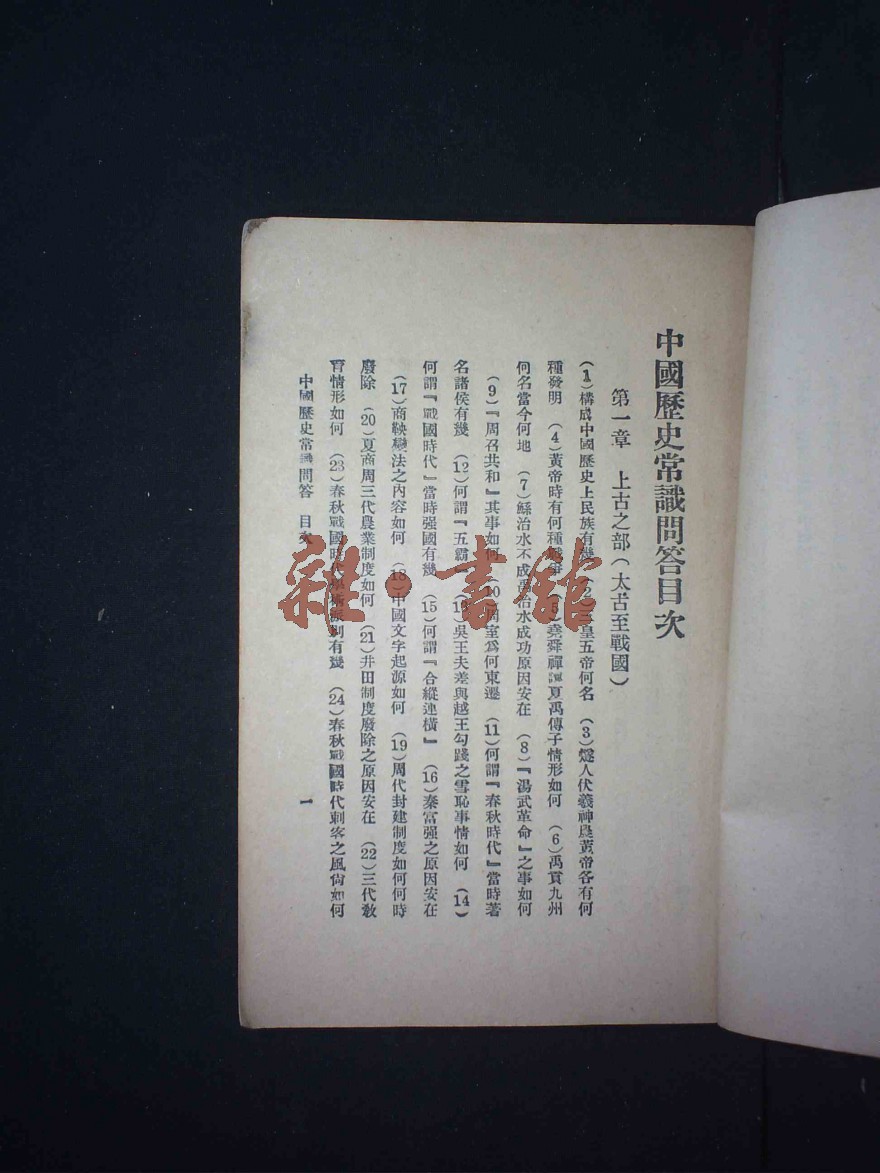 中國歷史常識問答目次
第一章　上古之部(太古至戰國)
(1)構成中國歷史上民族有幾 (2)三皇五帝何名 (3)燧人伏羲神農黃帝各有何
種發明 (4)黃帝時有何種戰爭 (5)堯舜禪讓夏禹傳子情形如何 (6)禹貢九州
何名當今何地 (7)鯀治水不成禹治水成功原因安在 (8)『湯武革命』之事如何
(9)『周召共和』其事如何 (10)周室爲何東遷 (11)何謂『春秋時代』當時著
名諸侯有幾 (12)何謂『五霸』 (13)吳王夫差與越王勾踐之雪恥事情如何 (14)
何謂『戰國時代』當時强國有幾 (15)何謂『合縱連橫』 (16)秦富强之原因安在
(17)商鞅變法之內容如何 (18)中國文字起源如何 (19)周代封建制度如何何時
廢除 (20)夏商周三代農業制度如何 (21)井田制度廢除之原因安在 (22)三代敎
育情形如何 (23)春秋戰國時代學術派別有幾 (24)春秋戰國時代刺客之風尙如何
中國歷史常識問答　目次
一
雜·書館